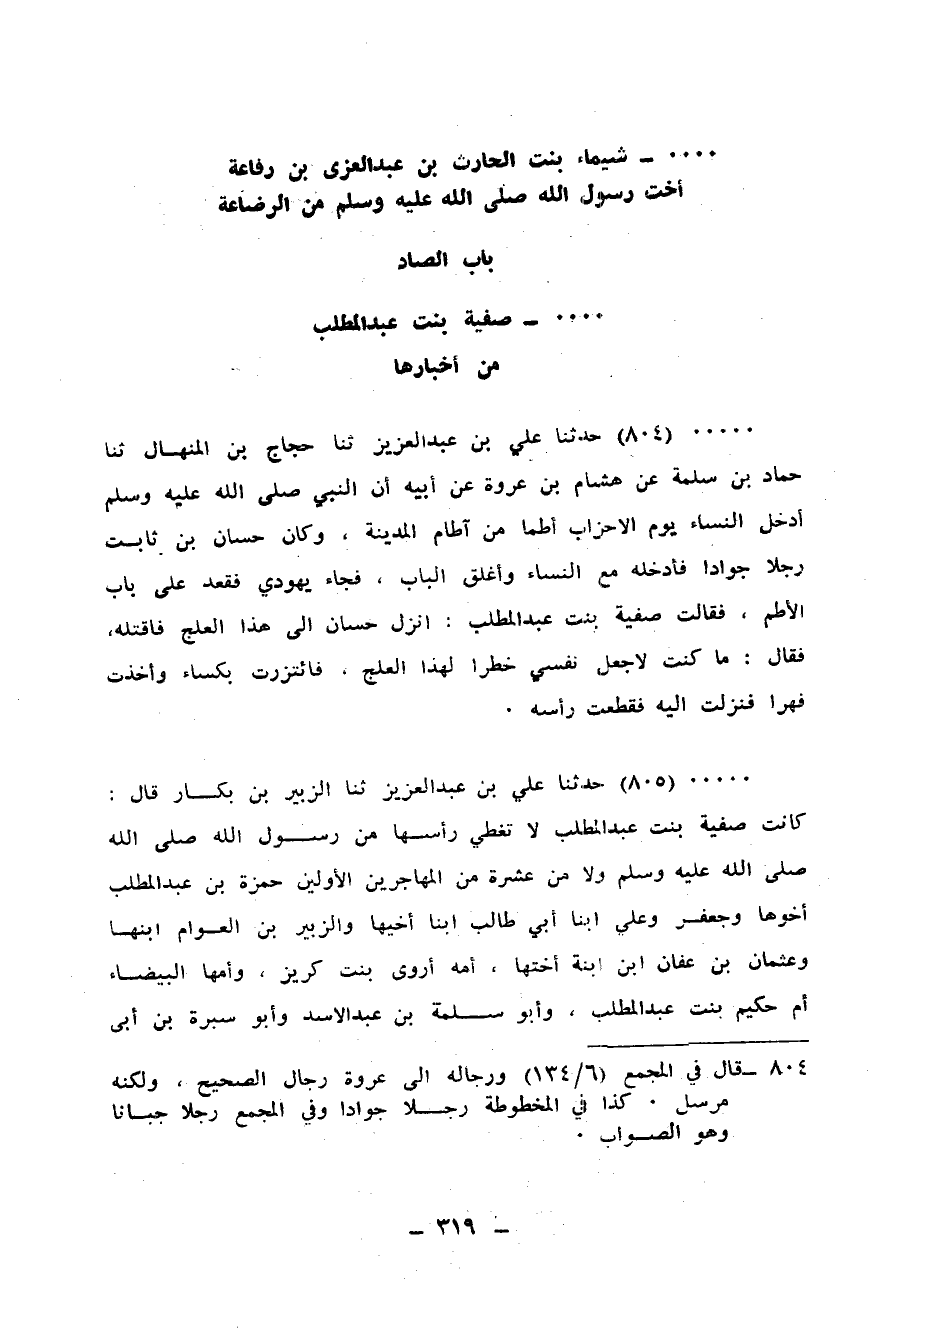 ٠٠٠٠ ــ شيماء بنت الحارث بن عبدالعزى بن رفاعة
أخت رسول الله صلى الله عليه وسلم من الرضاعة
باب الصاد
٠٠٠٠ ــ صفية بنت عبدالمطلب
من أخبارها
٠٠٠٠٠ (٨٠٤) حدثنا علي بن عبدالعزيز ثنا حجاج بن المنهال ثنا
حماد بن سلمة عن هشام بن عروة عن أبيه أن النبي صلى الله عليه وسلم
أدخل النساء يوم الاحزاب أطما من آطام المدينة ، وكان حسان بن ثابت
رجلا جوادا فأدخله مع النساء وأغلق الباب ، فجاء يهودي فقعد على باب
الأطم ، فقالت صفية بنت عبدالمطلب : انزل حسان الى هذا العلج فاقتله،
فقال : ما كنت لاجعل نفسي خطرا لهذا العلج ، فائتزرت بكساء وأخذت
فهرا فنزلت اليه فقطعت رأسه ٠
٠٠٠٠٠ (٨٠٥) حدثنا علي بن عبدالعزيز ثنا الزبير بن بكار قال :
كانت صفية بنت عبدالمطلب لا تغطي رأسها من رسول الله صلى الله
صلى الله عليه وسلم ولا من عشرة من المهاجرين الأولين حمزة بن عبدالمطلب
أخوها وجعفر وعلي ابنا أبي طالب ابنا أخيها والزبير بن العوام ابنها
وعثمان بن عفان ابن ابنة أختها ، أمه أروى بنت كريز ، وأمها البيضاء
أم حكيم بنت عبدالمطلب ، وأبو سلمة بن عبدالاسد وأبو سبرة بن أبى
٨٠٤ ــ قال في المجمع (١٣٤/٦) ورجاله الى عروة رجال الصحيح ، ولكنه
مرسل ٠ كذا في المخطوطة رجلا جوادا وفي المجمع رجلا جبانا
وهو الصواب ٠
ــ ٣١٩ ــ